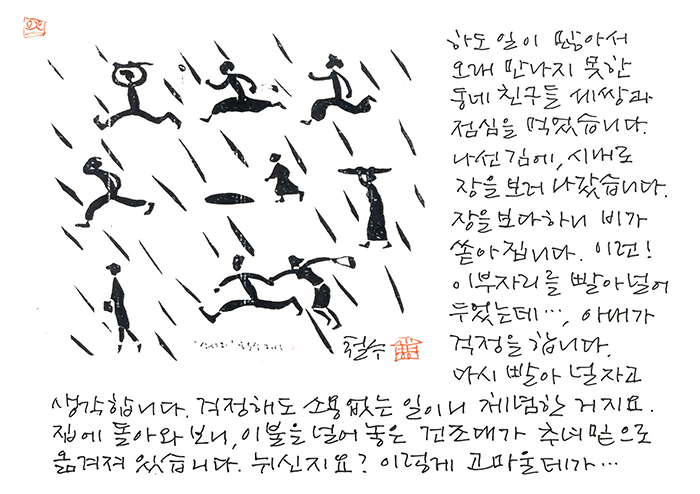 하도 일이 많아서
오래 만나지 못한
동네 친구들 세쌍과
점심을 먹었습니다.
나선 김에, 시내로
장을 보러 나갔습니다.
장을 보다하니 비가
쏟아집니다. 이런!
이부자리를 빨아널어
두었는데…, 아내가
걱정을 합니다.
다시 빨아 널자고
생각합니다. 걱정해도 소용없는 일이니 체념한 거지요.
집에 돌아와 보니, 이불을 널어 놓은 건조대가 추녀밑으로
옮겨져 있습니다. 뉘신지요? 이렇게 고마울데가…
철수